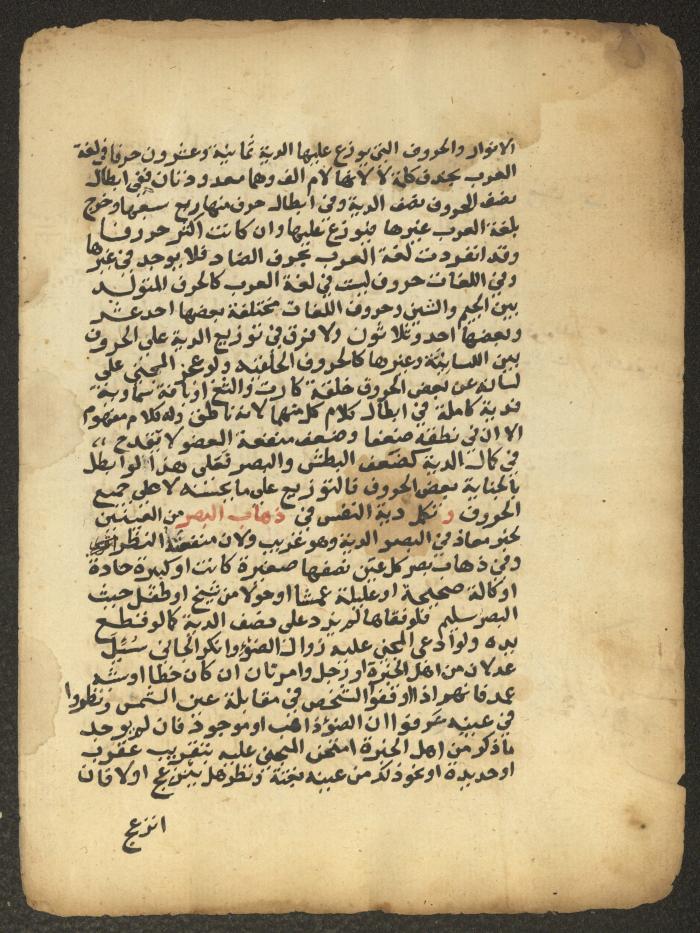 الاقوال والحروف التي يوزع عليها الدية ثمانية وعشرون حرفا في لغة
العرب بحذف كلمة لا لانها لام الف وهما معدودتان ففي ابطال
نصف الحروف نصف الدية وفي ابطال حرف منها ربع سبعها وخرج
بلغة العرب غيرها فيوزع عليها وان كانت اكثر حروفا
وقد انفردت لغة العرب بحرف الضاد فلا يوجد في غيرها
وفي اللغات حروف ليست في لغة العرب كالحرف المتولد
بين الجيم والشين وحروف اللغات مختلفة بعضها احد عشر
وبعضها احد وثلاثون ولا فرق في توزيع الدية على الحروف
بين اللسانية وغيرها كالحروف الحلقية ولو عجز المجني على
لسانه عن بعض الحروف خلقة كارت والثغ او بافة سماوية
فدية كاملة في ابطال كلام كل منهما لانه ناطق وله كلام مفهوم
الا ان في نطقه ضعفا وضعف منفعة العضو لا يقدح
في كمال الدية كضعف البطش والبصر فعلى هذا لو ابطل
بالجناية بعض الحروف فالتوزيع على ما يحسنه لا على جميع
الحروف وتكمل دية النفس في ذهاب البصر من العينين
لخبر معاذ في البصر الدية وهو غريب ولان منفعته النظر
وفي ذهاب بصر كل عين نصفها صغيرة كانت او كبيرة حادة
او كالة صحيحة او عليلة عمشا او حولا من شيخ او طفل حيث
البصر سليم فلو فقاها لم يزد على نصف الدية كما لو قطع
يده ولو ادعى المجني عليه زوال الضوء وانكر الجاني سئل
عدلان من اهل الخبرة او رجل وامراتان ان كان خطا او شبه
عمد فانهم اذا اوقفوا الشخص في مقابلة عين الشمس ونظروا
في عينيه عرفوا ان الضوء ذاهب او موجود فان لم يوجد
ما ذكر من اهل الخبرة امتحن المجني عليه بتقريب عقرب
او حديدة او نحو ذلك من عينيه بغتة ونظر هل ينزعج اولا فان
انزعج